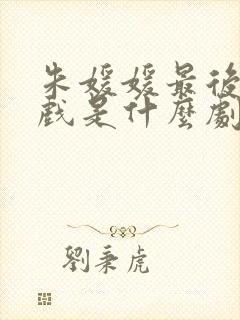 朱媛媛最後
戲是什麼劇
劉秉虎